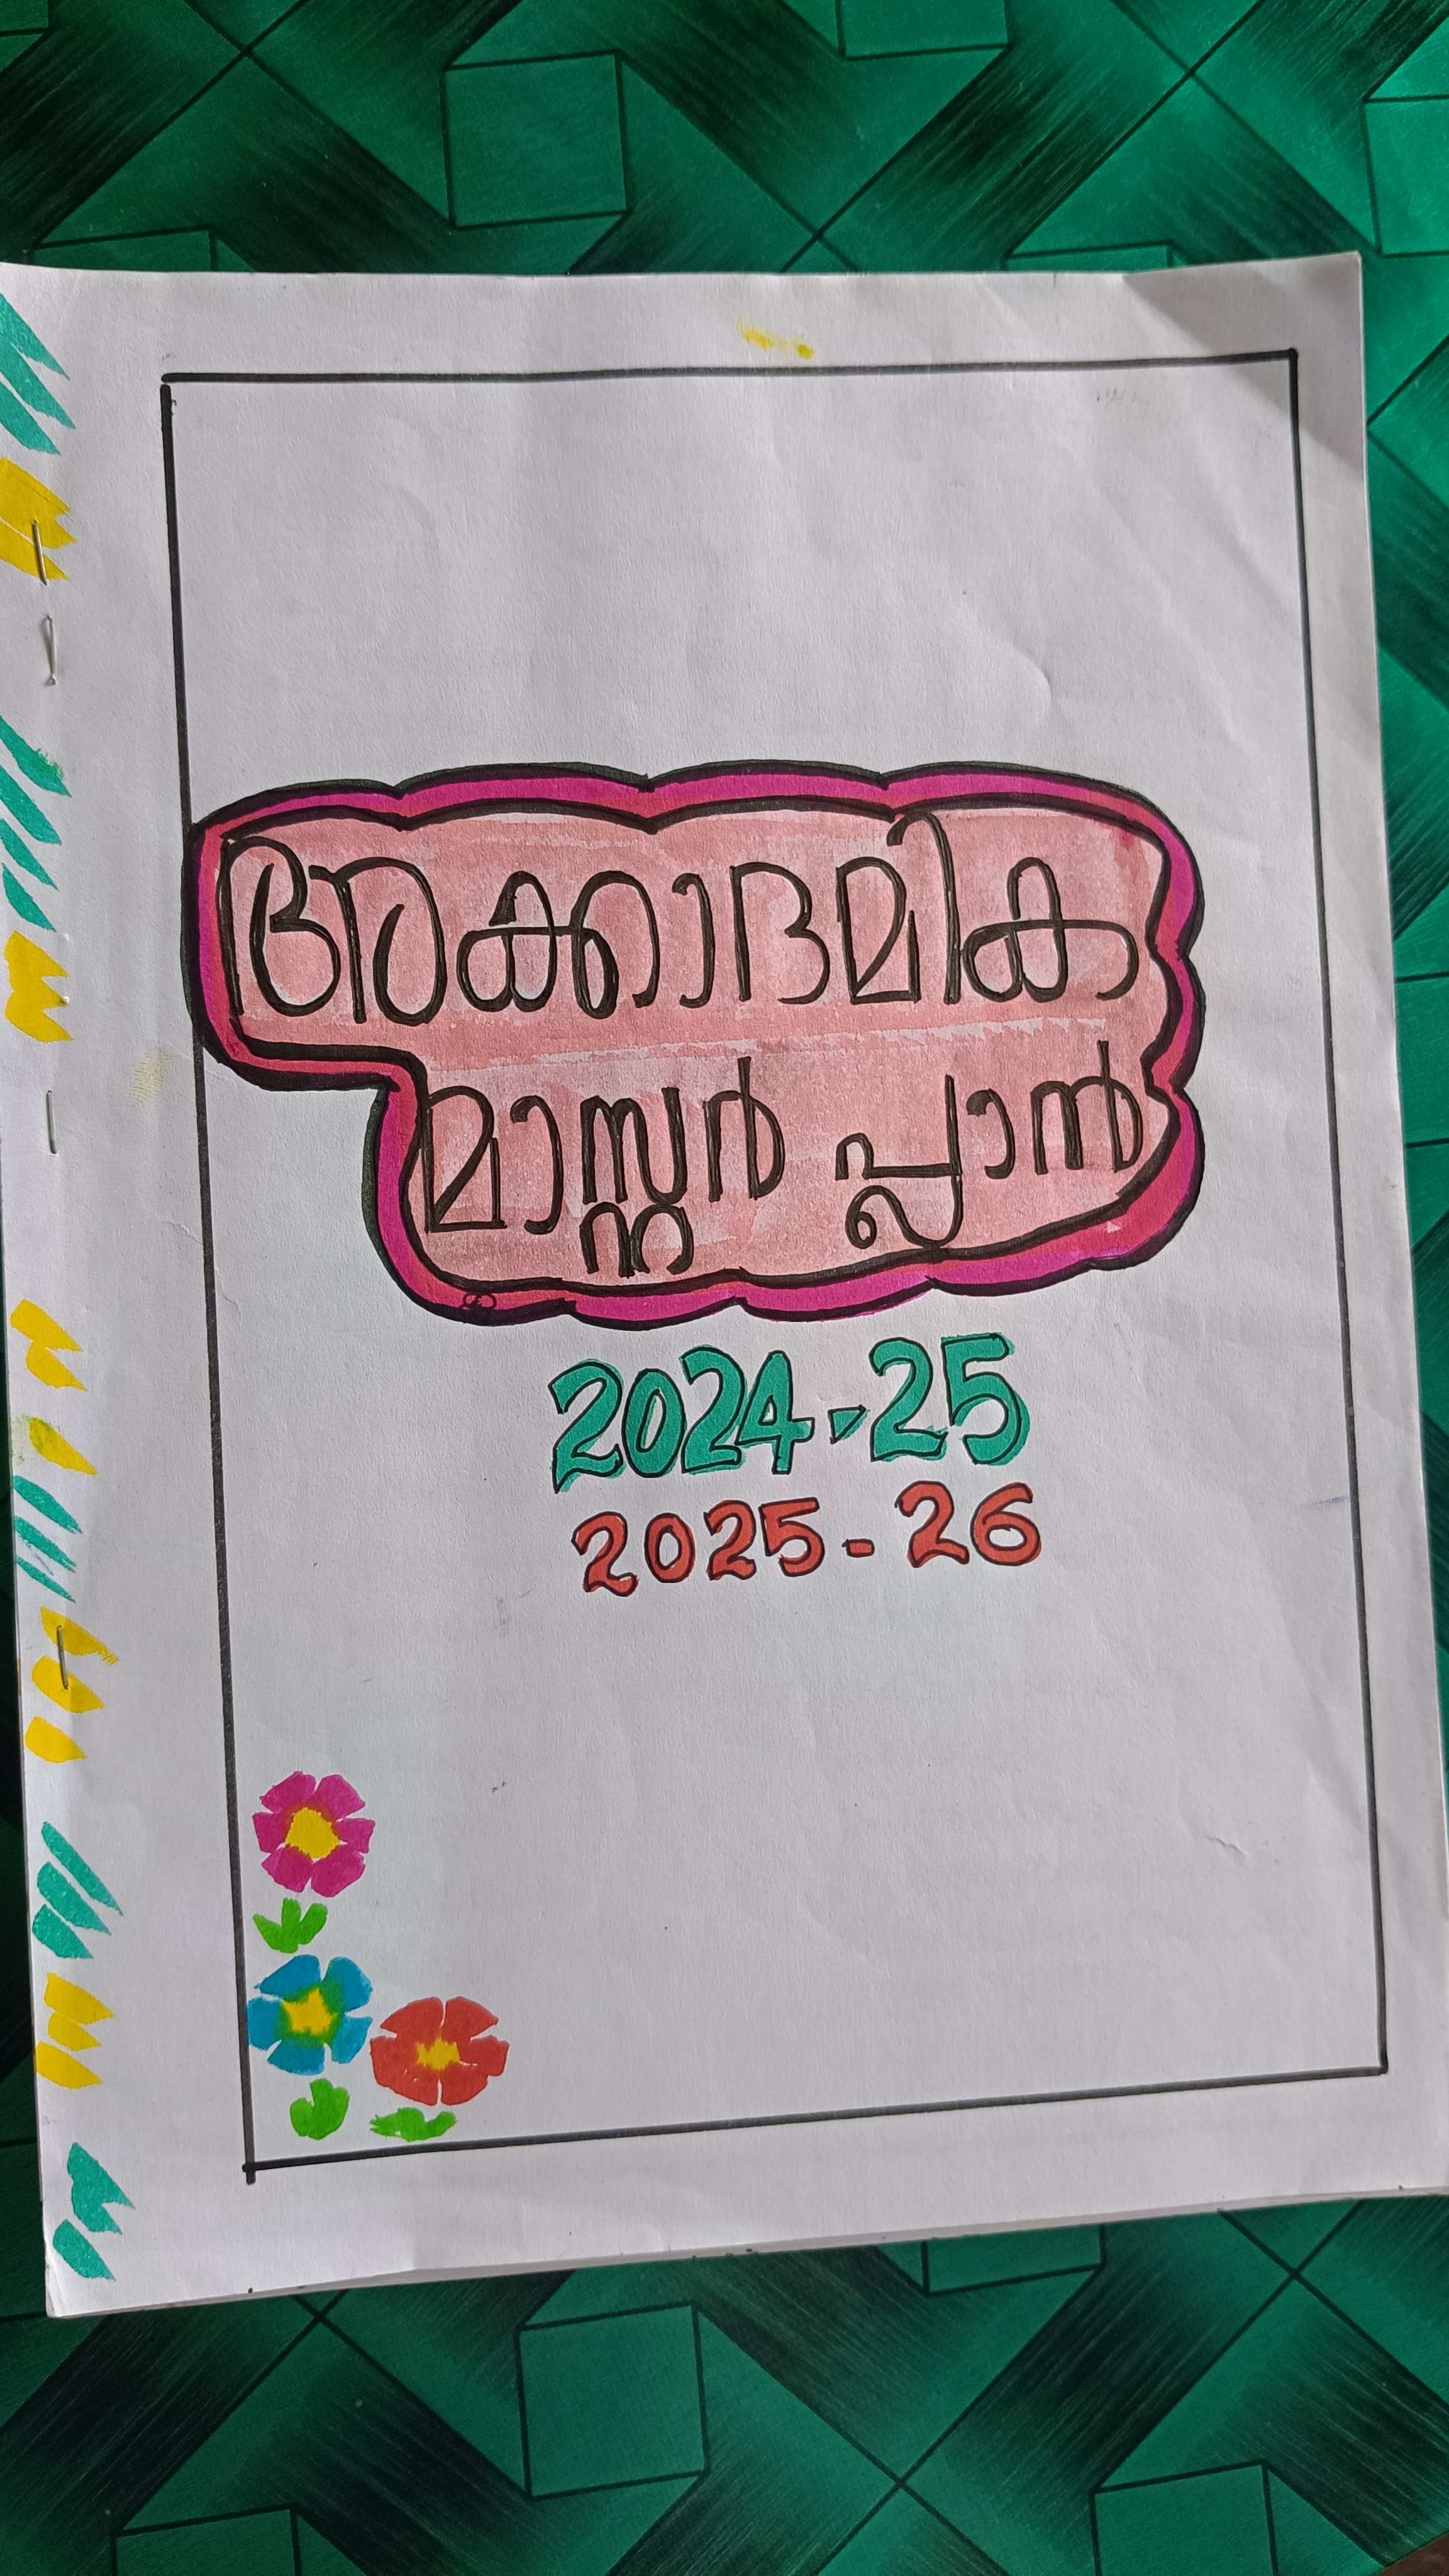 അക്കാദമിക
മാസ്റ്റർ പ്ലാൻ
2024-25
2025-26